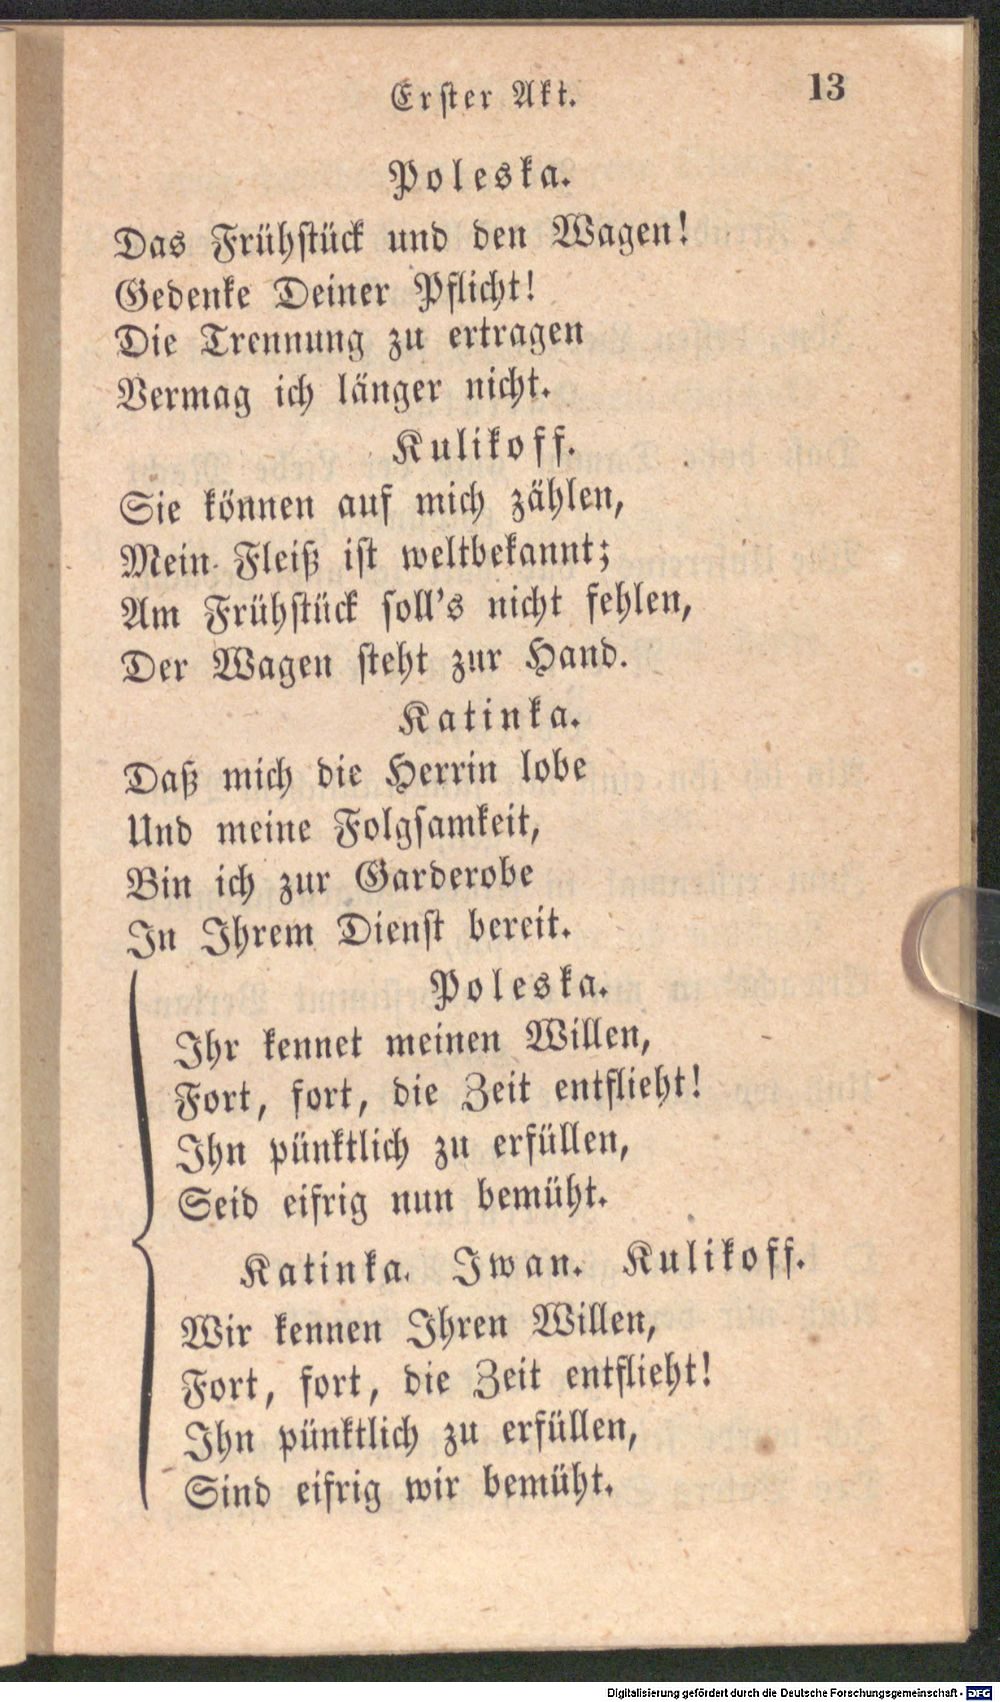 Erster Akt. 13
Poleska.
Das Frühstück und den Wagen!
Gedenke Deiner Pflicht!
Die Trennung zu ertragen
Vermag ich länger nicht.
Kulikoff.
Sie können auf mich zählen,
Mein Fleiß ist weltbekannt;
Am Frühstück soll's nicht fehlen,
Der Wagen steht zur Hand.
Katinka.
Daß mich die Herrin lobe
Und meine Folgsamkeit,
Bin ich zur Garderobe
In Ihrem Dienst bereit.
Poleska.
Ihr kennet meinen Willen,
Fort, fort, die Zeit entflieht!
Ihn pünktlich zu erfüllen,
Seid eifrig nun bemüht.
Katinka. Iwan. Kulikoff.
Wir kennen Ihren Willen,
Fort, fort, die Zeit entflieht!
Ihn pünktlich zu erfüllen,
Sind eifrig wir bemüht.
Digitalisierung gefördert durch die Deutsche Forschungsgemeinschaft - DFG